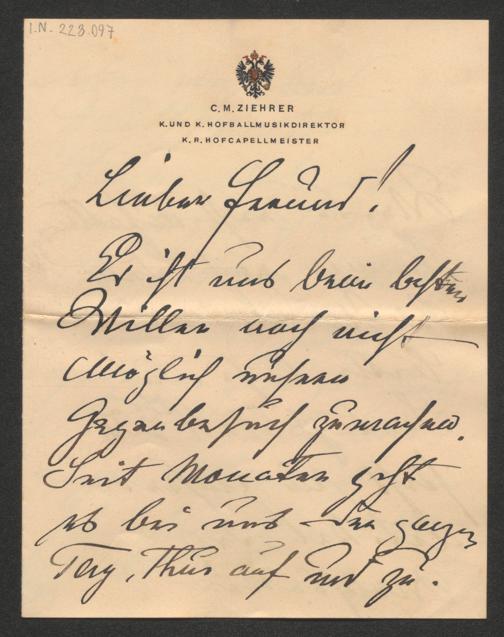 I.N. 223.097
C. M. ZIEHRER
K. UND K. HOFBALLMUSIKDIREKTOR
K. R. HOFCAPELLMEISTER
Lieber Freund!
Es ist uns beim besten
Willen noch nicht
möglich unseren
Gegenbesuch zumachen.
Seit Monaten geht
es bei uns den ganzen
Tag, Thür auf und zu.